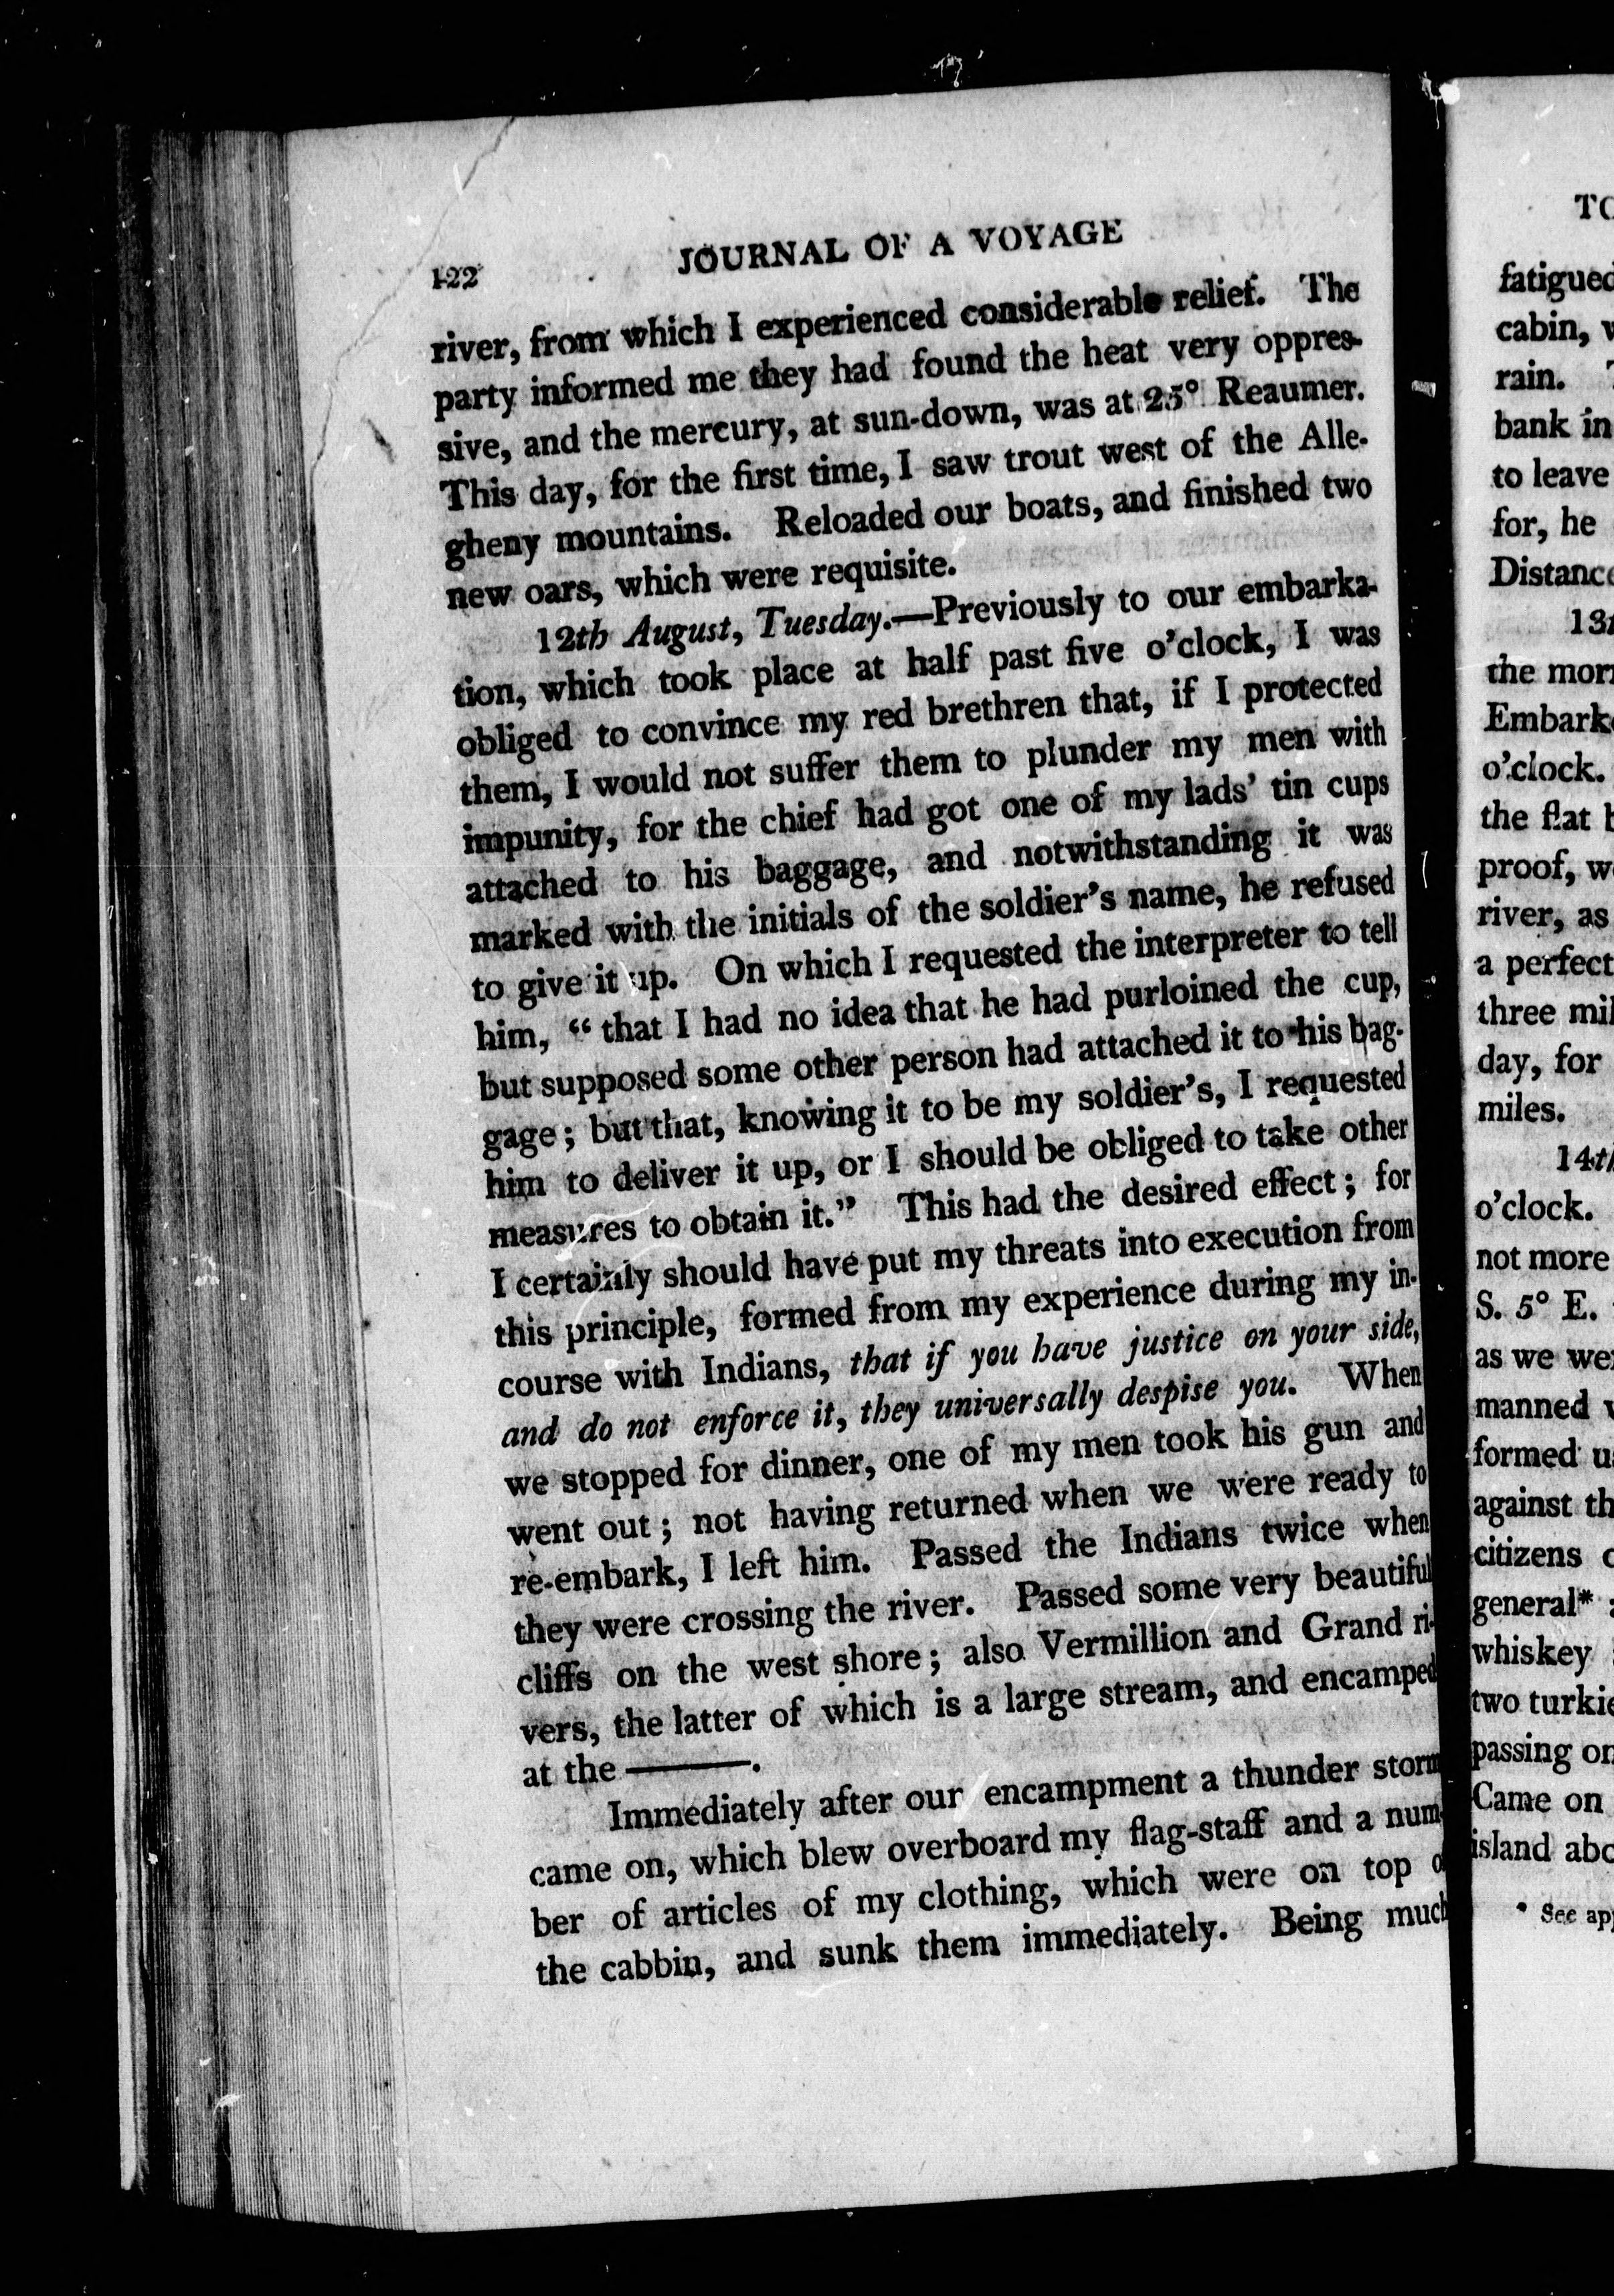 122 JOURNAL OF A VOYAGE
river, from which I experienced considerable relief. The
party informed me they had found the heat very oppres-
sive, and the mercury, at sun-down, was at 25° Reaumer.
This day, for the first time, I saw trout west of the Alle-
gheny mountains. Reloaded our boats, and finished two
new oars, which were requisite.
12th August, Tuesday.—Previously to our embarka-
tion, which took place at half past five o'clock, I was
obliged to convince my red brethren that, if I protected
them, I would not suffer them to plunder my men with
impunity, for the chief had got one of my lads' tin cups
attached to his baggage, and notwithstanding it was
marked with the initials of the soldier's name, he refused
to give it up. On which I requested the interpreter to tell
him, “ that I had no idea that he had purloined the cup,
but supposed some other person had attached it to his bag-
gage; but that, knowing it to be my soldier's, I requested
him to deliver it up, or I should be obliged to take other
measures to obtain it.” This had the desired effect; for
I certainly should have put my threats into execution from
this principle, formed from my experience during my in-
course with Indians, that if you have justice on your side,
and do not enforce it, they universally despise you. When
we stopped for dinner, one of my men took his gun and
went out; not having returned when we were ready to
re-embark, I left him. Passed the Indians twice when
they were crossing the river. Passed some very beautiful
cliffs on the west shore; also Vermillion and Grand ri-
vers, the latter of which is a large stream, and encamped
at the ———.
Immediately after our encampment a thunder storm
came on, which blew overboard my flag-staff and a num-
ber of articles of my clothing, which were on top o
the cabbin, and sunk them immediately. Being much
TO
fatigued
cabin, w
rain. T
bank in
to leave
for, he
Distance
13t
the morn
Embark
o'clock.
the flat b
proof, w
river, as
a perfect
three mil
day, for
miles.
14th
o'clock.
not more
S. 5° E.
as we we
manned w
formed u
against th
citizens o
general*
whiskey
two turkie
passing on
Came on
island abo
* See app